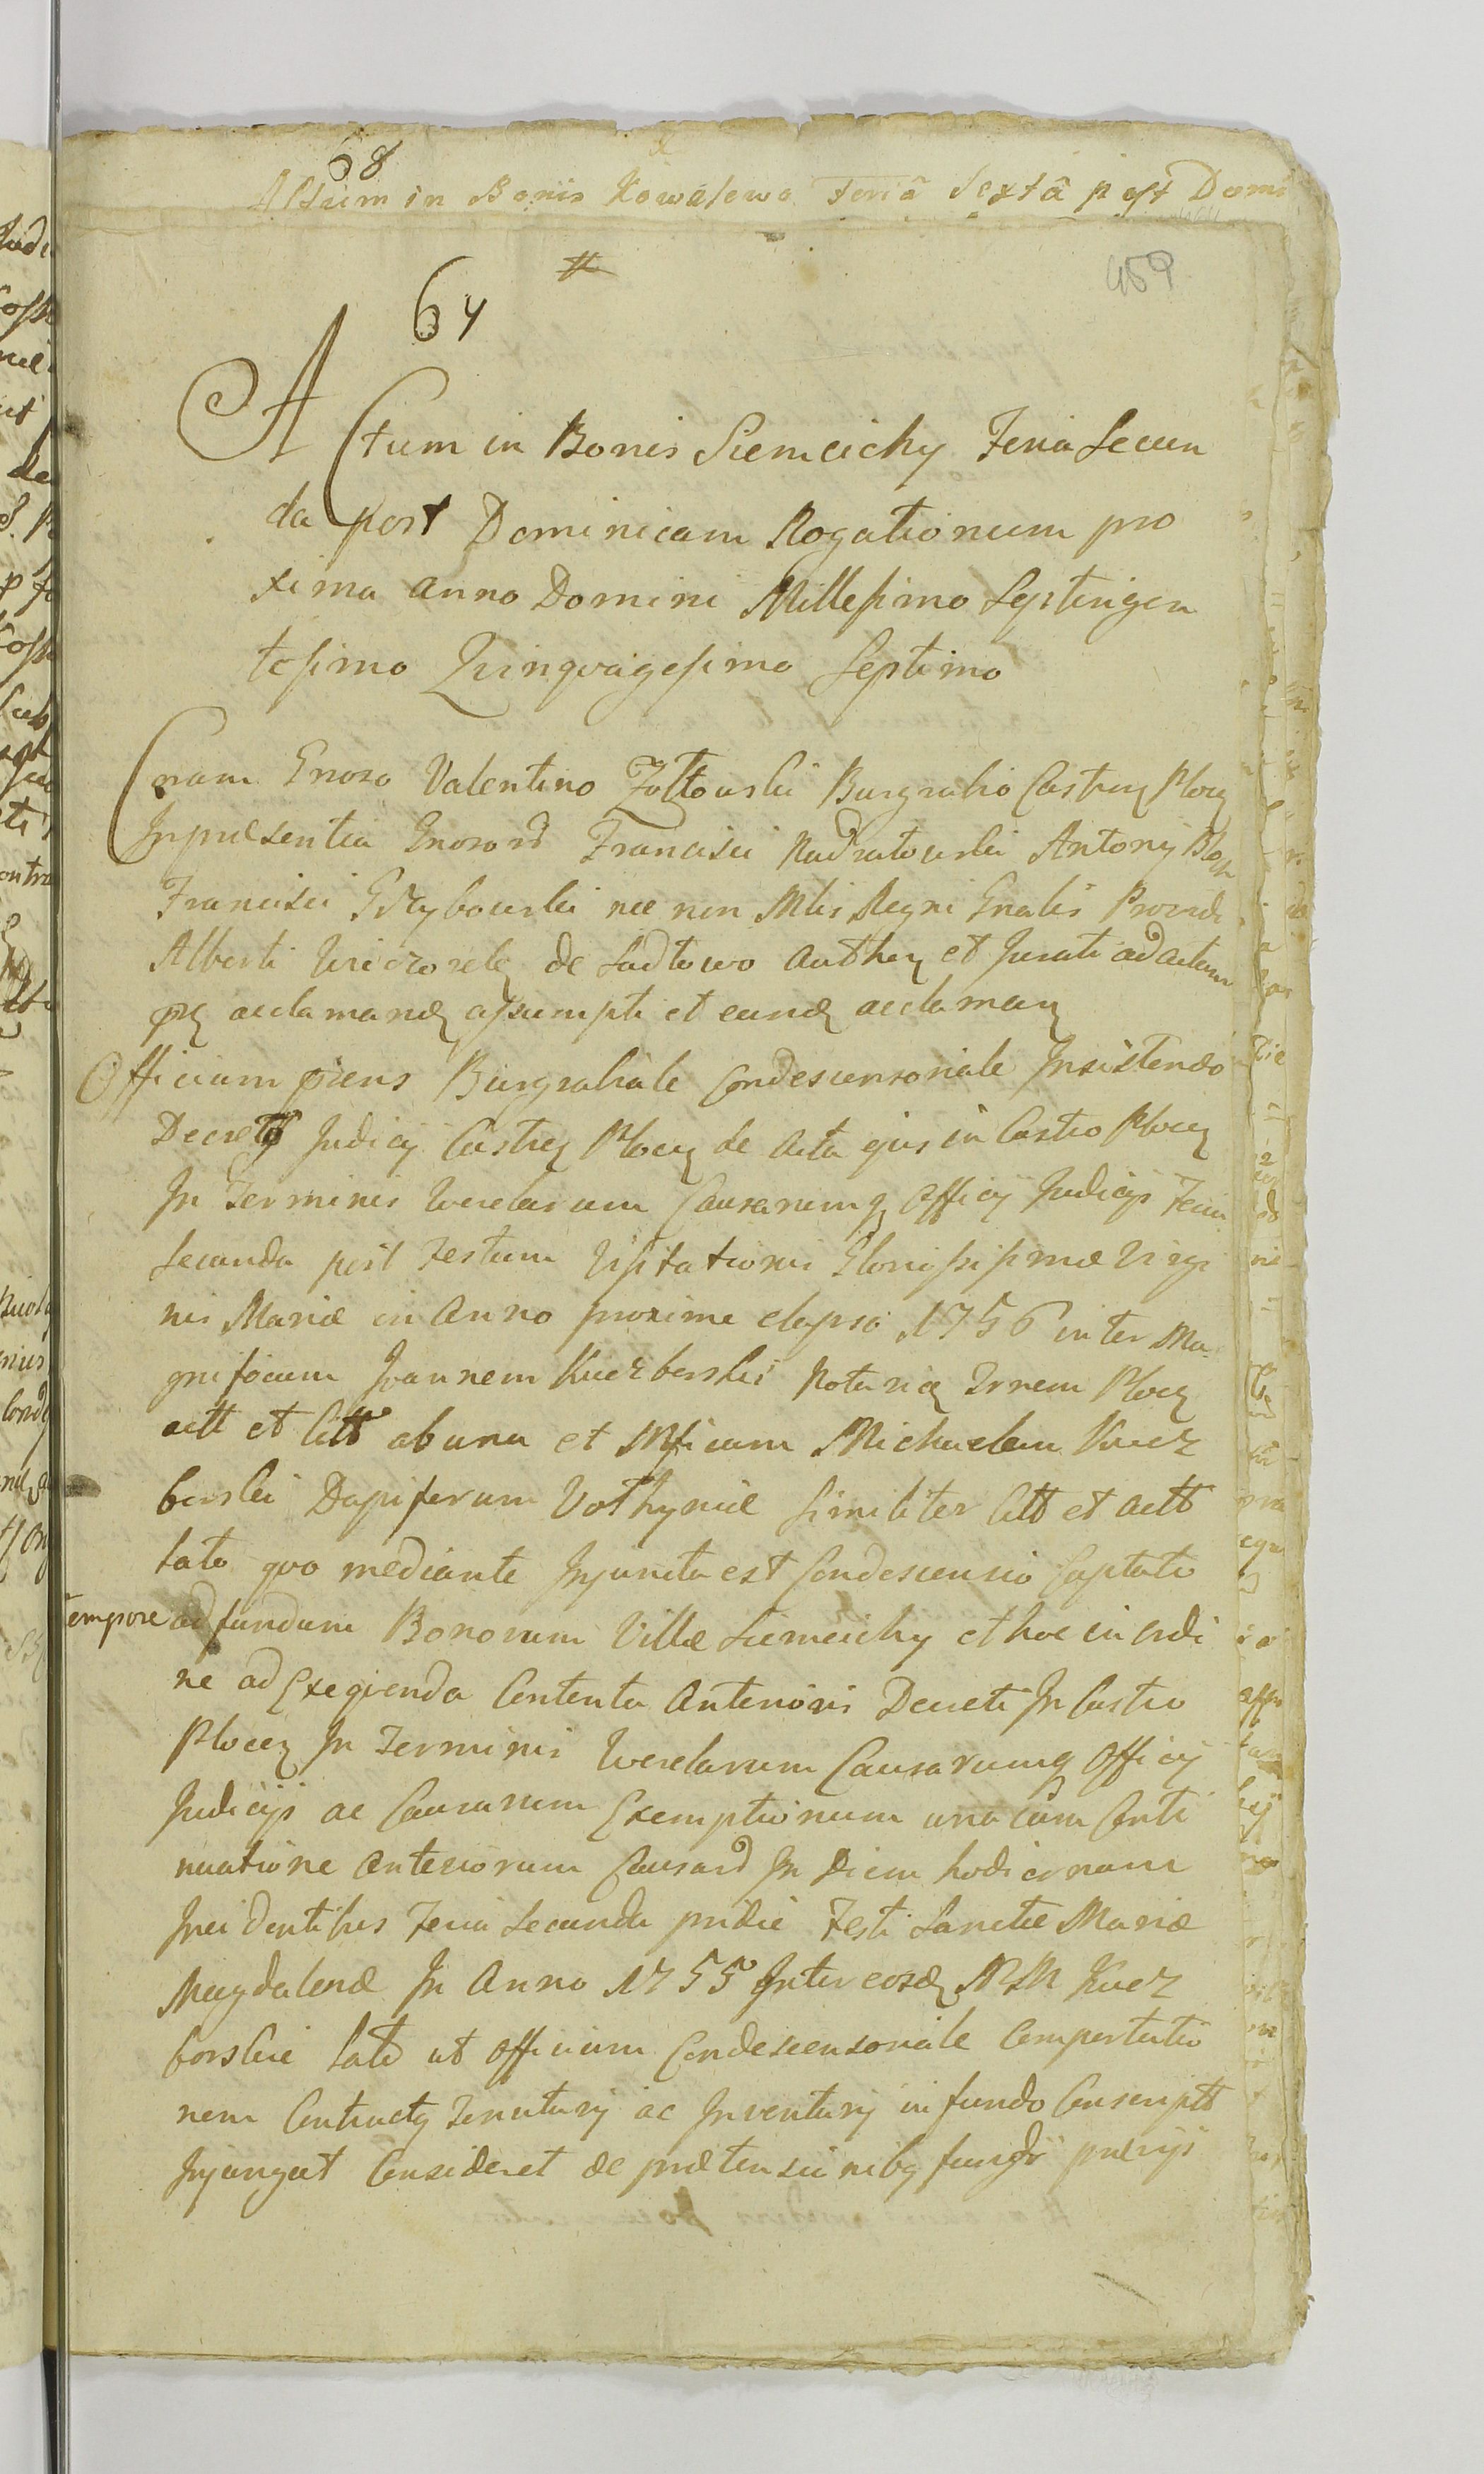 68
Actum in Bonis Kowalewo Feriâ Sextâ post Domi
459
64
Actum in Bonis Siemcichy Feria Secun
da post Dominicam Rogationum pro
xima Anno Domini Millesimo Septingen
tesimo Quinqvagesimo Septimo
Coram Gnoso Valentino Zołtowski Burgrabio Castren Plocen
In præsentia Gnosord Francisci Nadratowski Antonij
Francisci Grzybowski nec non Mlis Regni Gnalis Providi
Alberti Wieczorek de Sadłowo Authen et Jurati ad actum
acclamand assumpti et eund acclaman
Officium præns Burgrabiale Condescensoriale Insistendo
Decreto Judicij Castren Plocen de Acta ejus in Castro Plocen
In Terminis Querelarum Causarumq Officij Judicijs Feria
Secunda post Festum Visitationis Gloriosissimæ Virgi
nis Mariæ in Anno proxime elapso 1756 inter Ma
gnificum Joannem Kuczborski Notariu Trrem Plocen
actt et Citt ab una et Mficum Michaelem Kucz
borski Dapiferum Vołhyniæ Similiter Citt et actt
lato qvo mediante Injuncta est Condescensio Captato
tempore ad fundum Bonorum Villæ Siemcichy et hoc in ordi
ne ad Exeqvenda Contenta Anterioris Decreti In Castro
Plocen In Terminis Querelarum Causarumq Officij
Judicijs ac Causarum Exemptionum una cum Conti
nuatione anteriorum Causard In Diem hodiernam
Incidentibus Feria Secunda pridie Festi Sanctæ Mariæ
Magdalenæ In Anno 1755 Inter eosd MM Kucz
borskie lato ut Officium Condescensoriale Comportatio
nem Contractus Tenutarij ac Inventarij in fundo Conscriptt
Injungat Consideret de prætensionibq fundi